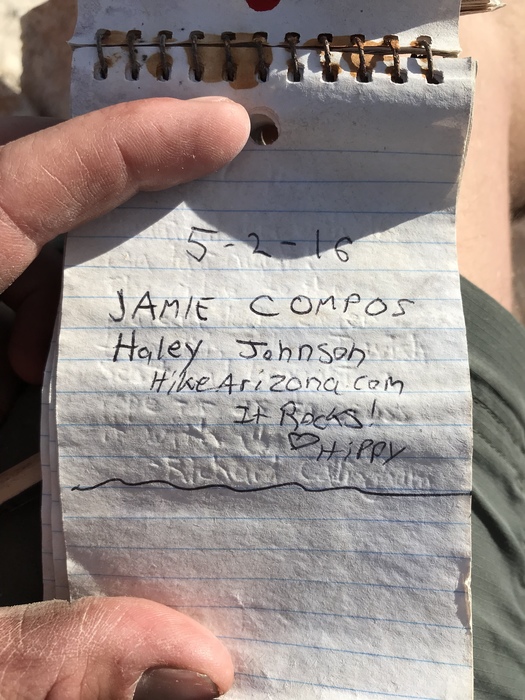 5-2-16
JAMIE COMPOS
Haley Johnson
HikeArizona.com
It Rocks!
♡HiPPY